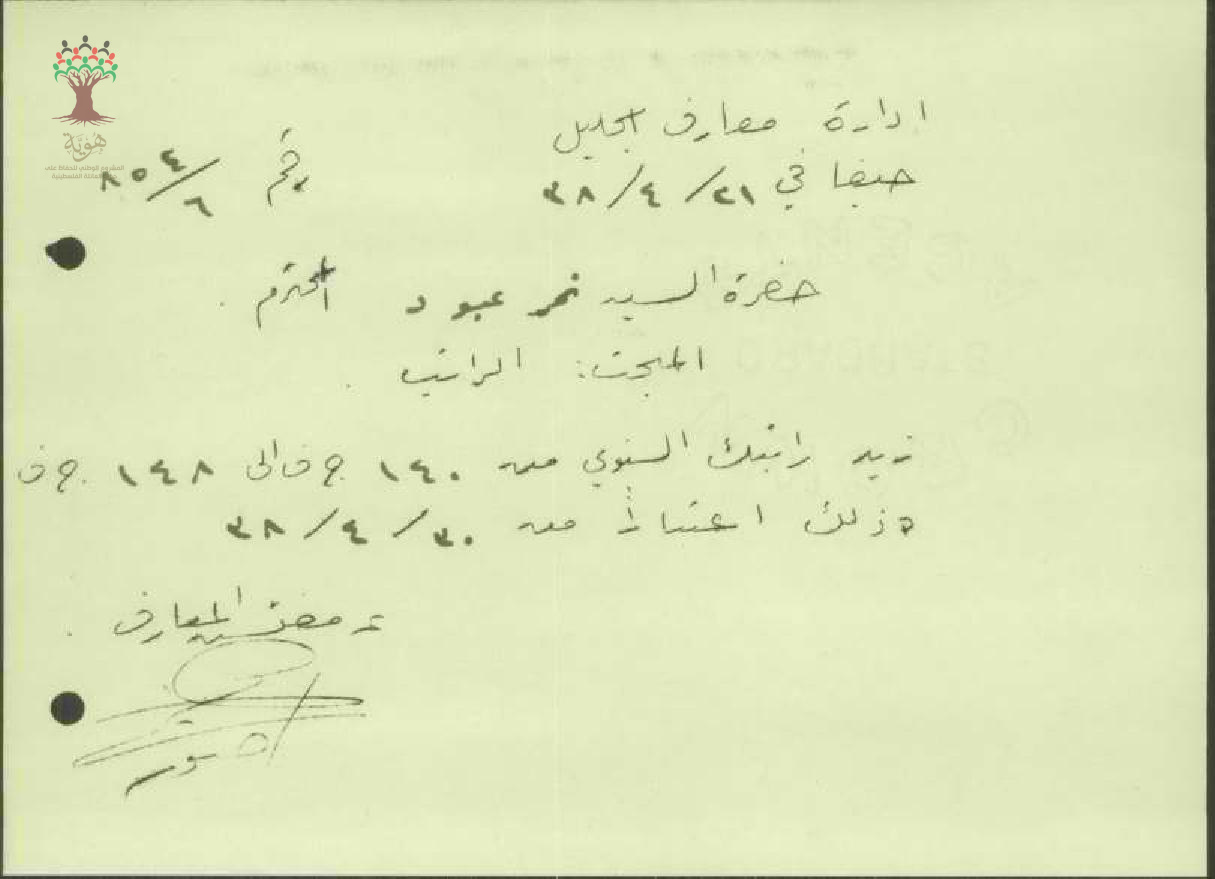 ادارة معارف الجليل
حيفا في ٢١/٤/٣٨ رقم ٨٥٤/٦
حضرة السيد نمر عبود المحترم .
المبحث: الراتب .
زيد راتبك السنوي من ١٤٠ ج ف الى ١٤٨ ج ف
وذلك اعتباراً من ٣٠/٤/٣٨
عن مفتش المعارف .
هُويَّة
المشروع الوطني للحفاظ على
العائلة الفلسطينية